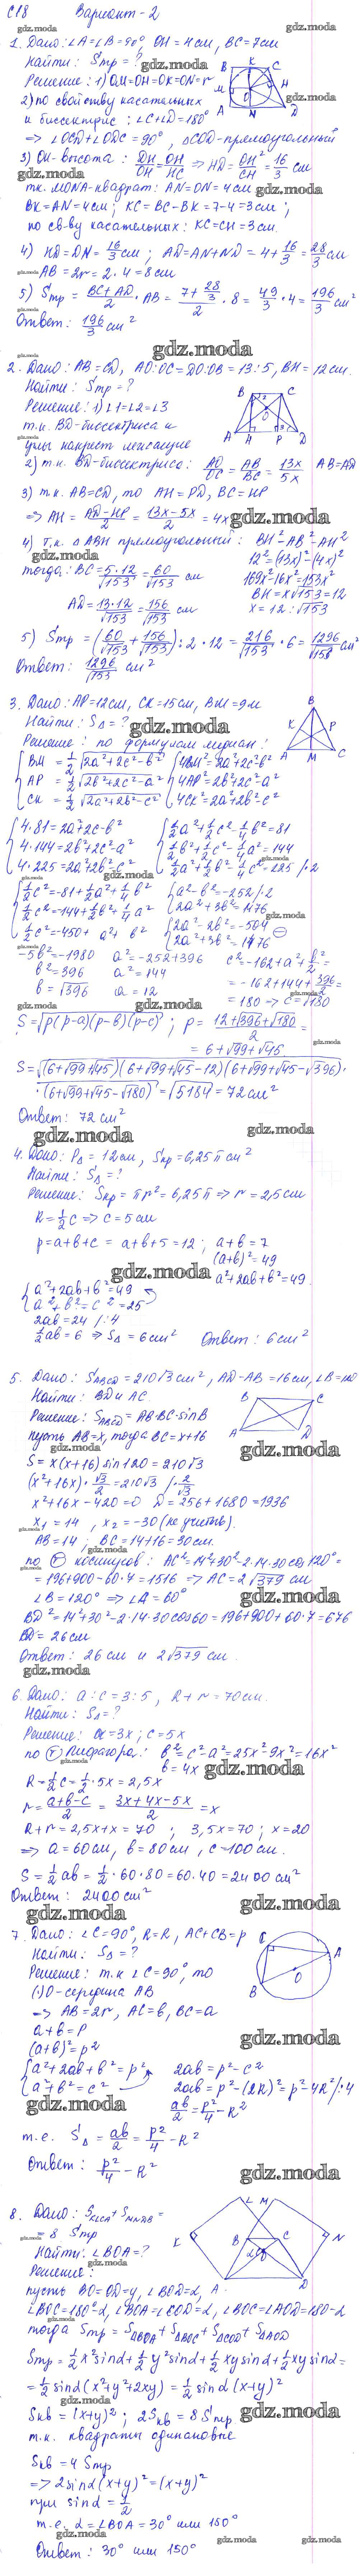 С18 Вариант - 2
1. Дано: ∠A=∠B=90°, OH=4см, BC=7см
Найти: Sтр = ?
Решение: 1) OM=OH=OK=ON=r
2) по свойству касательных
и биссектрис: ∠C+∠D=180°
⇒ ∠OCD+∠ODC=90°, △COD-прямоугольный
3) OH-высота: DH/OH = OH/HC ⇒ HD = OH²/CH = 16/3 см
т.к. MONA-квадрат: AN=ON=4см
BK=AN=4см; KC=BC-BK=7-4=3см;
по св-ву касательных: KC=CH=3см.
4) HD=DN=16/3 см; AD=AN+ND=4+16/3=28/3 см
AB=2r=2·4=8см
5) Sтр = (BC+AD)/2 · AB = (7+28/3)/2 · 8 = 49/3 · 4 = 196/3 см²
Ответ: 196/3 см²
gdz.moda
2. Дано: AB=CD, AO:OC=DO:OB=13:5, BH=12см.
Найти: Sтр=?
Решение: 1) ∠1=∠2=∠3
т.к. BD-биссектриса и
углы накрест лежащие
2) т.к. BD-биссектриса: AO/OC = AB/BC = 13x/5x AB=AD
3) т.к. AB=CD, то AH=PD, BC=HP
⇒ AH = (AD-HP)/2 = (13x-5x)/2 = 4x
4) т.к. △ABH прямоугольный: BH²=AB²-AH²
12²=(13x)²-(4x)²
тогда: BC = 5·12/√153 = 60/√153 см
169x²-16x²=153x²
BH=x√153=12
AD = 13·12/√153 = 156/√153 см
x=12:√153
5) Sтр = (60/√153 + 156/√153):2·12 = 216/√153 · 6 = 1296/√153 см²
Ответ: 1296/√153 см²
3. Дано: AP=12см, CK=15см, BM=9м
Найти: S△=?
Решение: по формулам медиан:
BM = 1/2 √(2a²+2c²-b²) 4BM²=2a²+2c²-b²
AP = 1/2 √(2b²+2c²-a²) 4AP²=2b²+2c²-a²
CK = 1/2 √(2a²+2b²-c²) 4CK²=2a²+2b²-c²
4·81=2a²+2c²-b² 1/2a²+1/2c²-1/4b²=81
4·144=2b²+2c²-a² 1/2b²+1/2c²-1/4a²=144
4·225=2a²+2b²-c² 1/2a²+1/2b²-1/4c²=225 /·2
1/2c²=81-1/2a²+1/4b² a²-b²=-252 /·2
1/2c²=144-1/2b²+1/4a² 2a²+3b²=1476
1/2c²=-450+a²+b² 2a²-2b²=-504
2a²+3b²=1476
-5b²=-1980 a²=-252+396 c²=-162+a²+b²/2=
b²=396 a²=144 =-162+144+396/2=
b=√396 a=12 =180 → c=√180
S=√(p(p-a)(p-b)(p-c)); p=(12+√396+√180)/2
=6+√99+√45
S=√((6+√99+√45)(6+√99+√45-12)(6+√99+√45-√396)·
·(6+√99+√45-√180))=√5184=72см²
Ответ: 72см²
4. Дано: P△=12см, Sкр=6,25π см²
Найти: S△=?
Решение: Sкр=πr²=6,25π ⇒ r=2,5см
R=1/2c ⇒ c=5см
p=a+b+c=a+b+5=12; a+b=7
(a+b)²=49
a²+2ab+b²=49.
a²+2ab+b²=49
a²+b²=c²=25
2ab=24 /:4
1/2ab=6 ⇒ S△=6см² Ответ: 6см²
5. Дано: SABCD=210√3см², AD-AB=16см, ∠B=120
Найти: BD и AC.
Решение: SABCD=AB·BC·sinB
пусть AB=x, тогда BC=x+16
S=x(x+16)sin120=210√3
(x²+16x)·√3/2=210√3 /·2/√3
x²+16x-420=0 D=256+1680=1936
x₁=14, x₂=-30 (не учитыв).
AB=14; BC=14+16=30см.
по Т косинусов: AC²=14²+30²-2·14·30cos120°=
=196+900-60·7=1516 ⇒ AC=2√379 см
∠B=120° ⇒ ∠A=60°
BD²=14²+30²-2·14·30cos60=196+900+60·7=676
BD=26см
Ответ: 26см и 2√379 см.
6. Дано: a:c=3:5, R+r=70см.
Найти: S△=?
Решение: a=3x; c=5x
по Т Пифагора: b²=c²-a²=25x²-9x²=16x²
b=4x
R=1/2c=1/2·5x=2,5x
r=(a+b-c)/2=(3x+4x-5x)/2=x
R+r=2,5x+x=70; 3,5x=70; x=20
⇒ a=60см, b=80см, c=100см.
S=1/2ab=1/2·60·80=60·40=2400см²
Ответ: 2400см²
7. Дано: ∠C=90°, R=R, AC+CB=p
Найти: S△=?
Решение: т.к ∠C=90°, то
(·)O-середина AB
⇒ AB=2r, AC=b, BC=a
a+b=P
(a+b)²=p²
a²+2ab+b²=p² 2ab=p²-c²
a²+b²=c² 2ab=p²-(2R)²=p²-4R² /:4
ab/2=p²/4-R²
т.е. S△=ab/2=p²/4-R²
Ответ: p²/4-R²
8. Дано: SKLCA+SMNDB=
=8 Sтр
Найти: ∠BOA=?
Решение:
пусть BO=OD=y, ∠BOD=α, A
∠BOC=180°-α, ∠BOA=∠COD=α, ∠BOC=∠AOD=180-α
тогда Sтр=S△BOA+S△BOC+S△COD+S△AOD
Sтр=1/2x²sinα+1/2y²sinα+1/2xysinα+1/2xysinα=
=1/2sinα(x²+y²+2xy)=1/2sinα(x+y)²
Sкв=(x+y)²; 2Sкв=8Sтр
т.к. квадраты одинаковые
Sкв=4Sтр
⇒ 2sinα(x+y)²=(x+y)²
при sinα=1/2
т.е. α=∠BOA=30° или 150°
Ответ: 30° или 150°